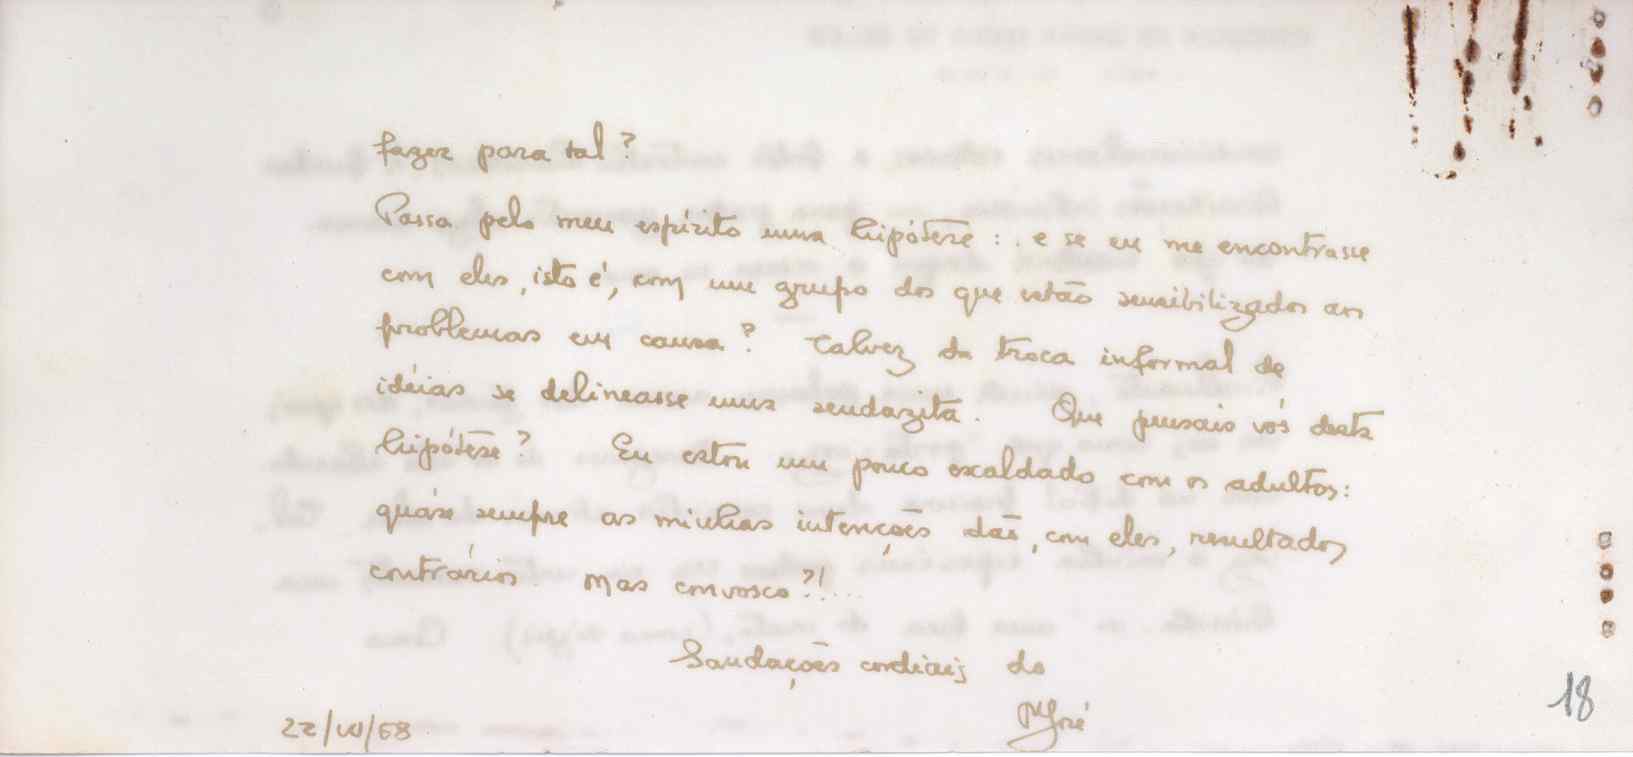 fazer para tal?
Passa pelo meu espírito uma hipótese: e se eu me encontrasse
com eles, isto é, com um grupo dos que estão sensibilizados aos
problemas em causa? Talvez da troca informal de
idéias se delineasse uma sendazita. Que pensais vós desta
hipótese? Eu estou um pouco escaldado com os adultos:
quáse sempre as minhas intenções dão, com eles, resultados
contrários. Mas convosco?!....
Saudações cordiais do
José
22/ /68
18